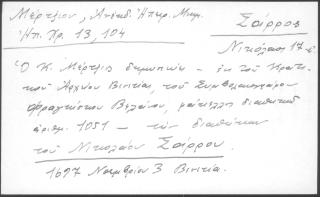 Μέρτζιου, Ἀνέκδ. Ἠπειρ. Μνημ.
Σαίρρος
Ἠπ. Χρ. 13, 104
Νικόλαος 17 αἰ.
Ὁ Κ. Μέρτζιος δημοσιεύει – ἐκ τοῦ Κρατικοῦ
Ἀρχείου Βενετίας, τοῦ Συμβολαιογράφου
Φραγκίσκου Βελάνου, φάκελλος διαθηκῶν
ἀριθμ. 1051 – τὴν διαθήκην
τοῦ Νικολάου Σαίρρου.
1697 Νοεμβρίου 3 Βενετία.